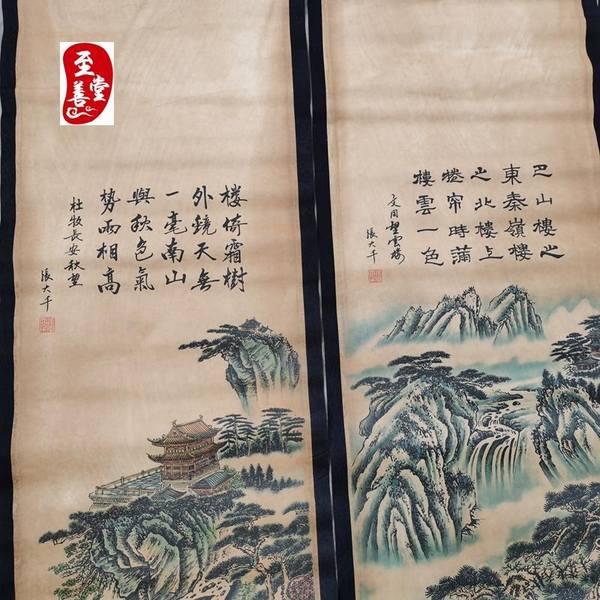 至善堂
楼倚霜樹
外鏡天無
一毫南山
與秋色氣
勢兩相高
杜牧長安秋望
張大千
巴山樓之
東秦嶺樓
之北樓上
捲帘時蒲
樓雲一色
文同望雲樓
張大千